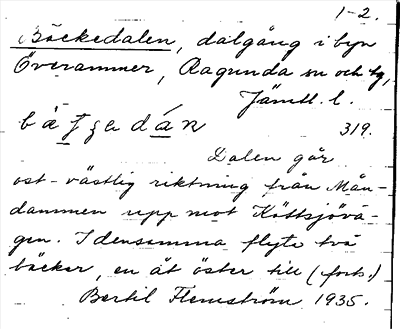 1-2.
Böckedalen, dalgång i byn
Överammer, Ragunda sn och tg,
Jämtl. l.
319.
Dalen går
ost-västlig riktning från Mån-
dammen upp mot Köttsjövä-
gen. I densamma flyta två
bäckar, en åt öster till (forts.)
Bertil Flemström 1935.